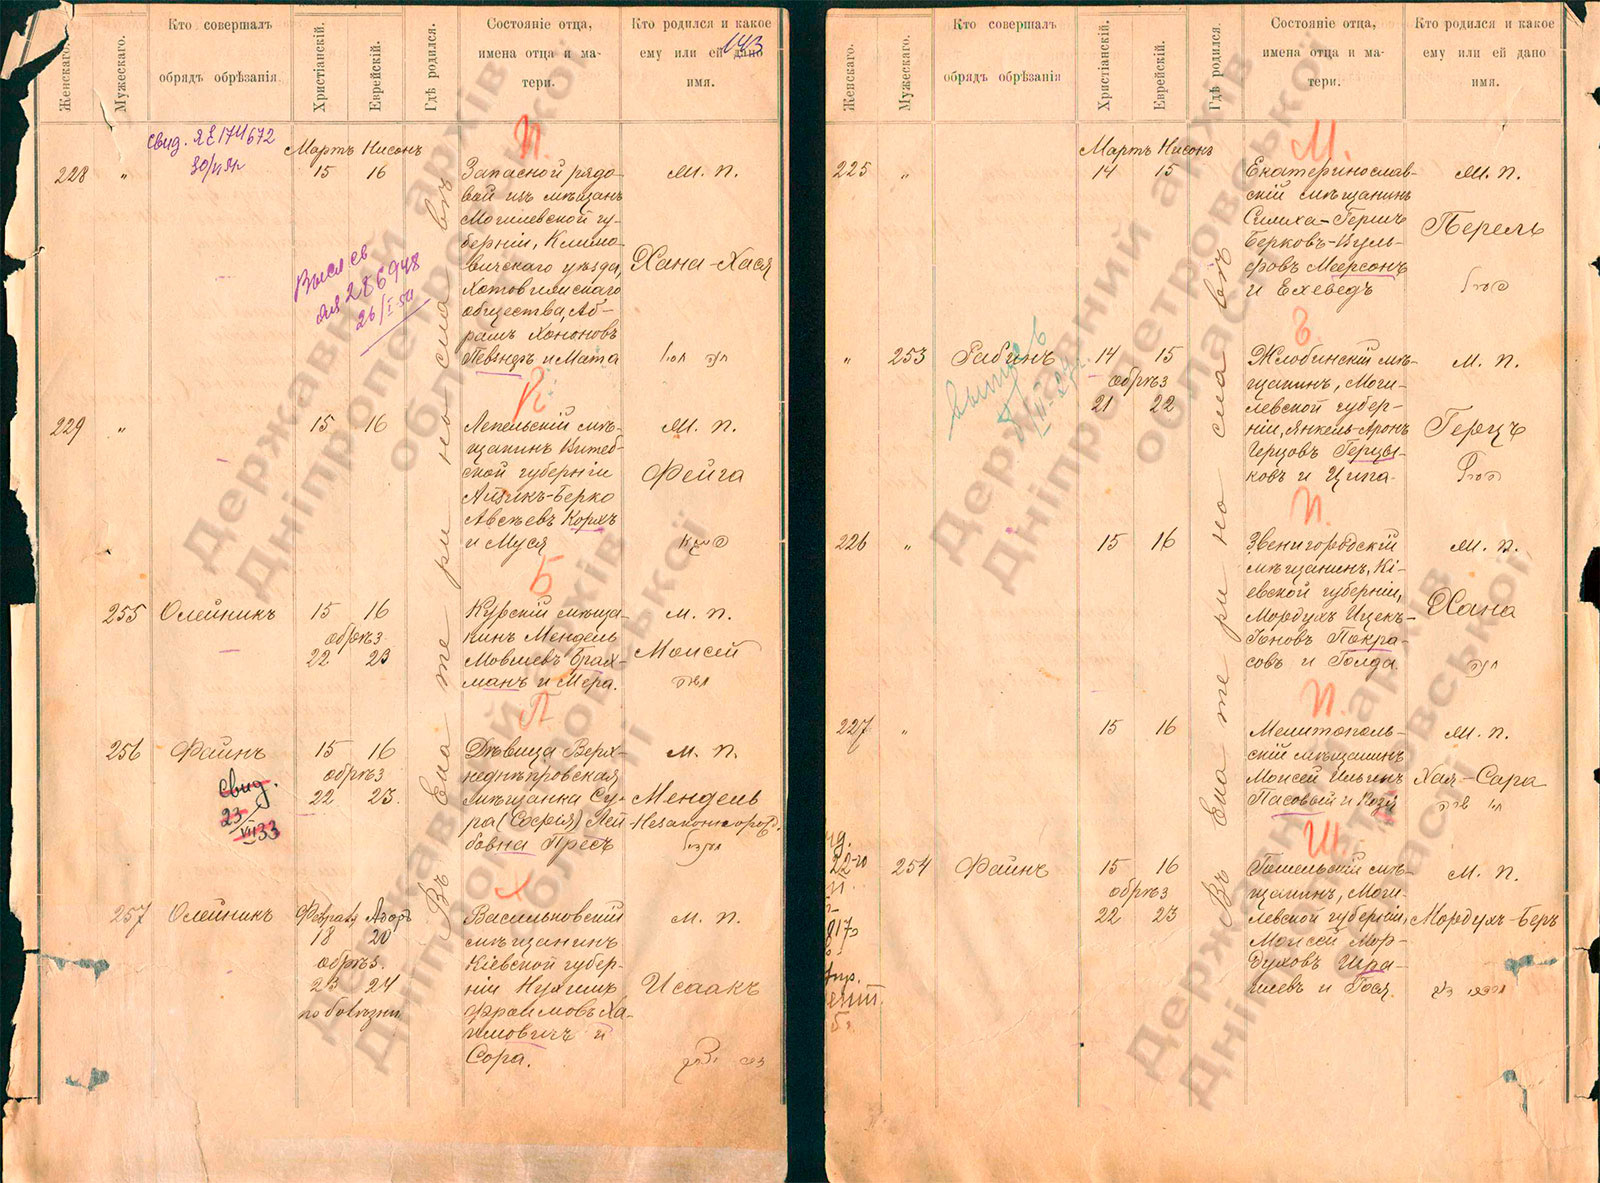 Женскаго.
Мужескаго.
Кто совершалъ
обрядъ обрѣзанія.
Христіанскій.
Еврейскій.
Гдѣ родился.
Состояніе отца,
имена отца и ма-
тери.
Кто родился и какое
ему или ей дано
имя.
143
свид. ЯЕ 174672
Мартъ Нисонъ
228 " 15 16
Запасной рядо-
вой изъ мѣщанъ
Могилевской гу-
берніи, Климо-
вичскаго уѣзда,
общества, Аб-
рамъ Хононовъ
Певзнеръ и Мата
М. п.
Хана-Хася
Высл св
для 286948
26/I 50
229 " 15 16
Лепельскій мѣ-
щанинъ Витеб-
ской губерніи
Айзикъ-Берко
Авсѣевъ Корхъ
и Муся
М. п.
Фейга
Б
255 Олейникъ 15 16
обрѣз
22 23
Курскій мѣща-
нинъ Мендель
Мовшевъ Брах-
манъ и Мера.
М. п.
Моисей
П
256 Файнъ 15 16
обрѣз
22 23.
свид.
23/VII 33
Дѣвица Верх-
неднѣпровская
мѣщанка Су-
ра (Софія) Лей-
бовна Пресъ
М. п.
Мендель
Незаконнорожд.
257 Олейникъ Февраль Адаръ
18 20
обрѣз.
23 24
по болѣзни
Васильковскій
мѣщанинъ
Кіевской губер-
ніи Нухимъ
Фроимовъ Ха-
имовичъ и
Сора.
М. п.
Исаакъ
Въ Екатеринославѣ
Женскаго.
Мужескаго.
Кто совершалъ
обрядъ обрѣзанія
Христіанскій.
Еврейскій.
Гдѣ родился.
Состояніе отца,
имена отца и ма-
тери.
Кто родился и какое
ему или ей дано
имя.
Мартъ Нисонъ
М.
225 " 14 15
Екатеринослав-
скій мѣщанинъ
Симха-Гершъ
Берковъ-Вуль-
фовъ Меерсонъ
и Ехеведъ
М. п.
Перель
" 253 Рабинъ 14 15
обрѣз
21 22
Жлобинскій мѣ-
щанинъ, Моги-
левской губер-
ніи, Янкель-Аронъ
Герцовъ Герцы-
ковъ и Ципа.
М. п.
Герцъ
П.
226 " 15 16
Звенигородскій
мѣщанинъ, Кі-
евской губерніи,
Мордухъ Ицекъ-
Іоновъ Покра-
совъ и Голда
М. п.
Хана
П.
227 " 15 16
Мелитополь-
скій мѣщанинъ
Моисей Ильинъ
Пасовый и Рози
М. п.
Хая-Сара
Ш.
254 Файнъ 15 16
обрѣз
22 23
Гомельскій мѣ-
щанинъ, Моги-
левской губерніи,
Моисей Мор-
духовъ Шра-
М. п.
Мордухъ-Беръ
Въ Екатеринославѣ
Державний архів
Дніпропетровської
області